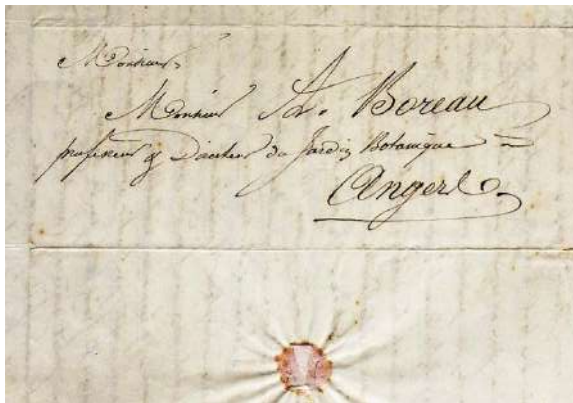 Monsieur
Monsieur A. Boreau
professeur & Directeur du Jardin Botanique
Angers